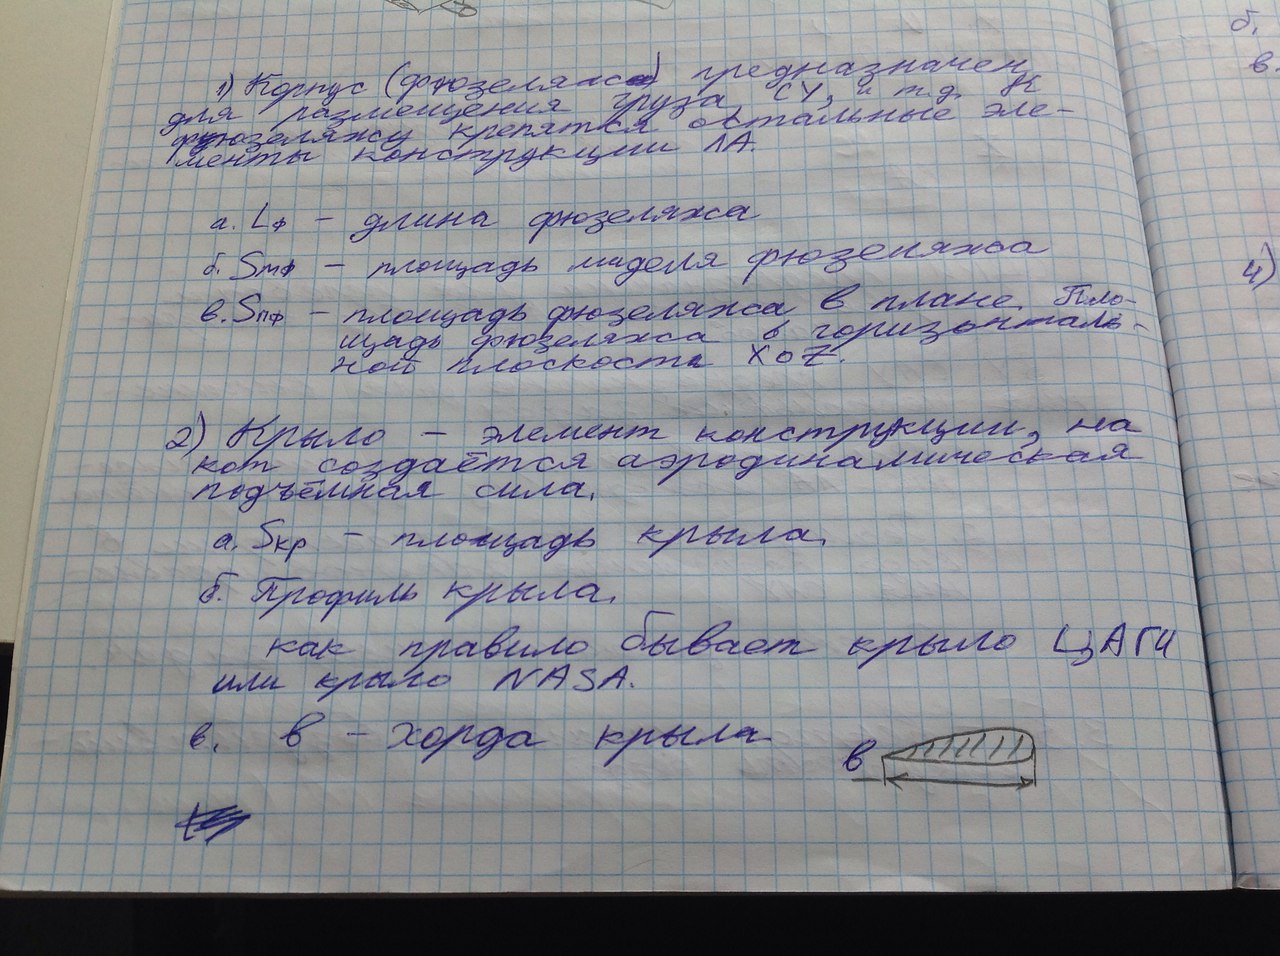 1) Корпус (фюзеляжа) предназначен
для размещения груза, СУ, и т.д. К
фюзеляжу крепятся остальные эле-
менты конструкции ЛА.
а. Lф – длина фюзеляжа
б. Sмф – площадь миделя фюзеляжа
в. Sпф – площадь фюзеляжа в плане. Пло-
щадь фюзеляжа в горизонталь-
ной плоскости XOZ.
2) Крыло – элемент конструкции, на
кот создаётся аэродинамическая
подъёмная сила.
а. Sкр – площадь крыла.
б. Профиль крыла.
как правило бывает крыло ЦАГИ
или крыло NASA.
в. в – хорда крыла
в
б.
в.
4)